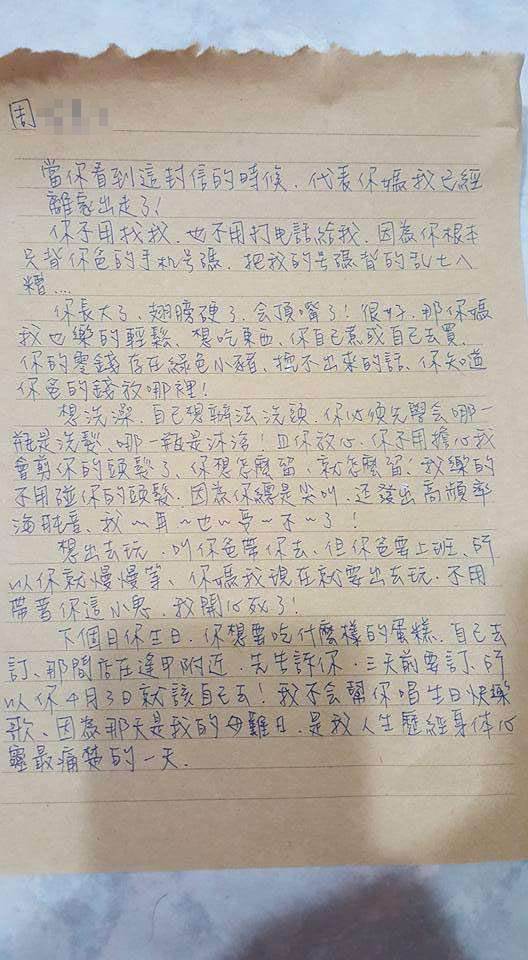 周
當你看到這封信的時候、代表你媽我已經
離家出走了!
你不用找我、也不用打电話給我、因為你根本
只背你爸的手机号碼、把我的号碼背的乱七八
糟....
你長大了、翅膀硬了、会頂嘴了!很好、那你媽
我也樂的輕鬆、想吃東西、你自己煮或自己去買、
你的零錢存在綠色小豬、挖不出來的話、你知道
你爸的錢放哪裡!
想洗澡、自己想辦法洗頭、你必須先學会哪一
瓶是洗髮、哪一瓶是沐浴!且你放心、你不用擔心我
會剪你的頭髮了、你想怎麼留、就怎麼留!我樂的
不用碰你的頭髮、因為你總是尖叫、还發出高頻率
海豚音、我~耳~也~受~不~了!
想出去玩、叫你爸帶你去、但你爸要上班、所
以你就慢慢等、你媽我現在就要出去玩、不用
帶著你這小鬼、我開心死了!
下個月你生日、你想要吃什麼樣的蛋糕、自己去
訂、那間店在逢甲附近、先告訴你、三天前要訂、所
以你4月3日就該自己去!我不会幫你唱生日快樂
歌、因為那天是我的母難日、是我人生歷經身体心
靈最痛楚的一天.